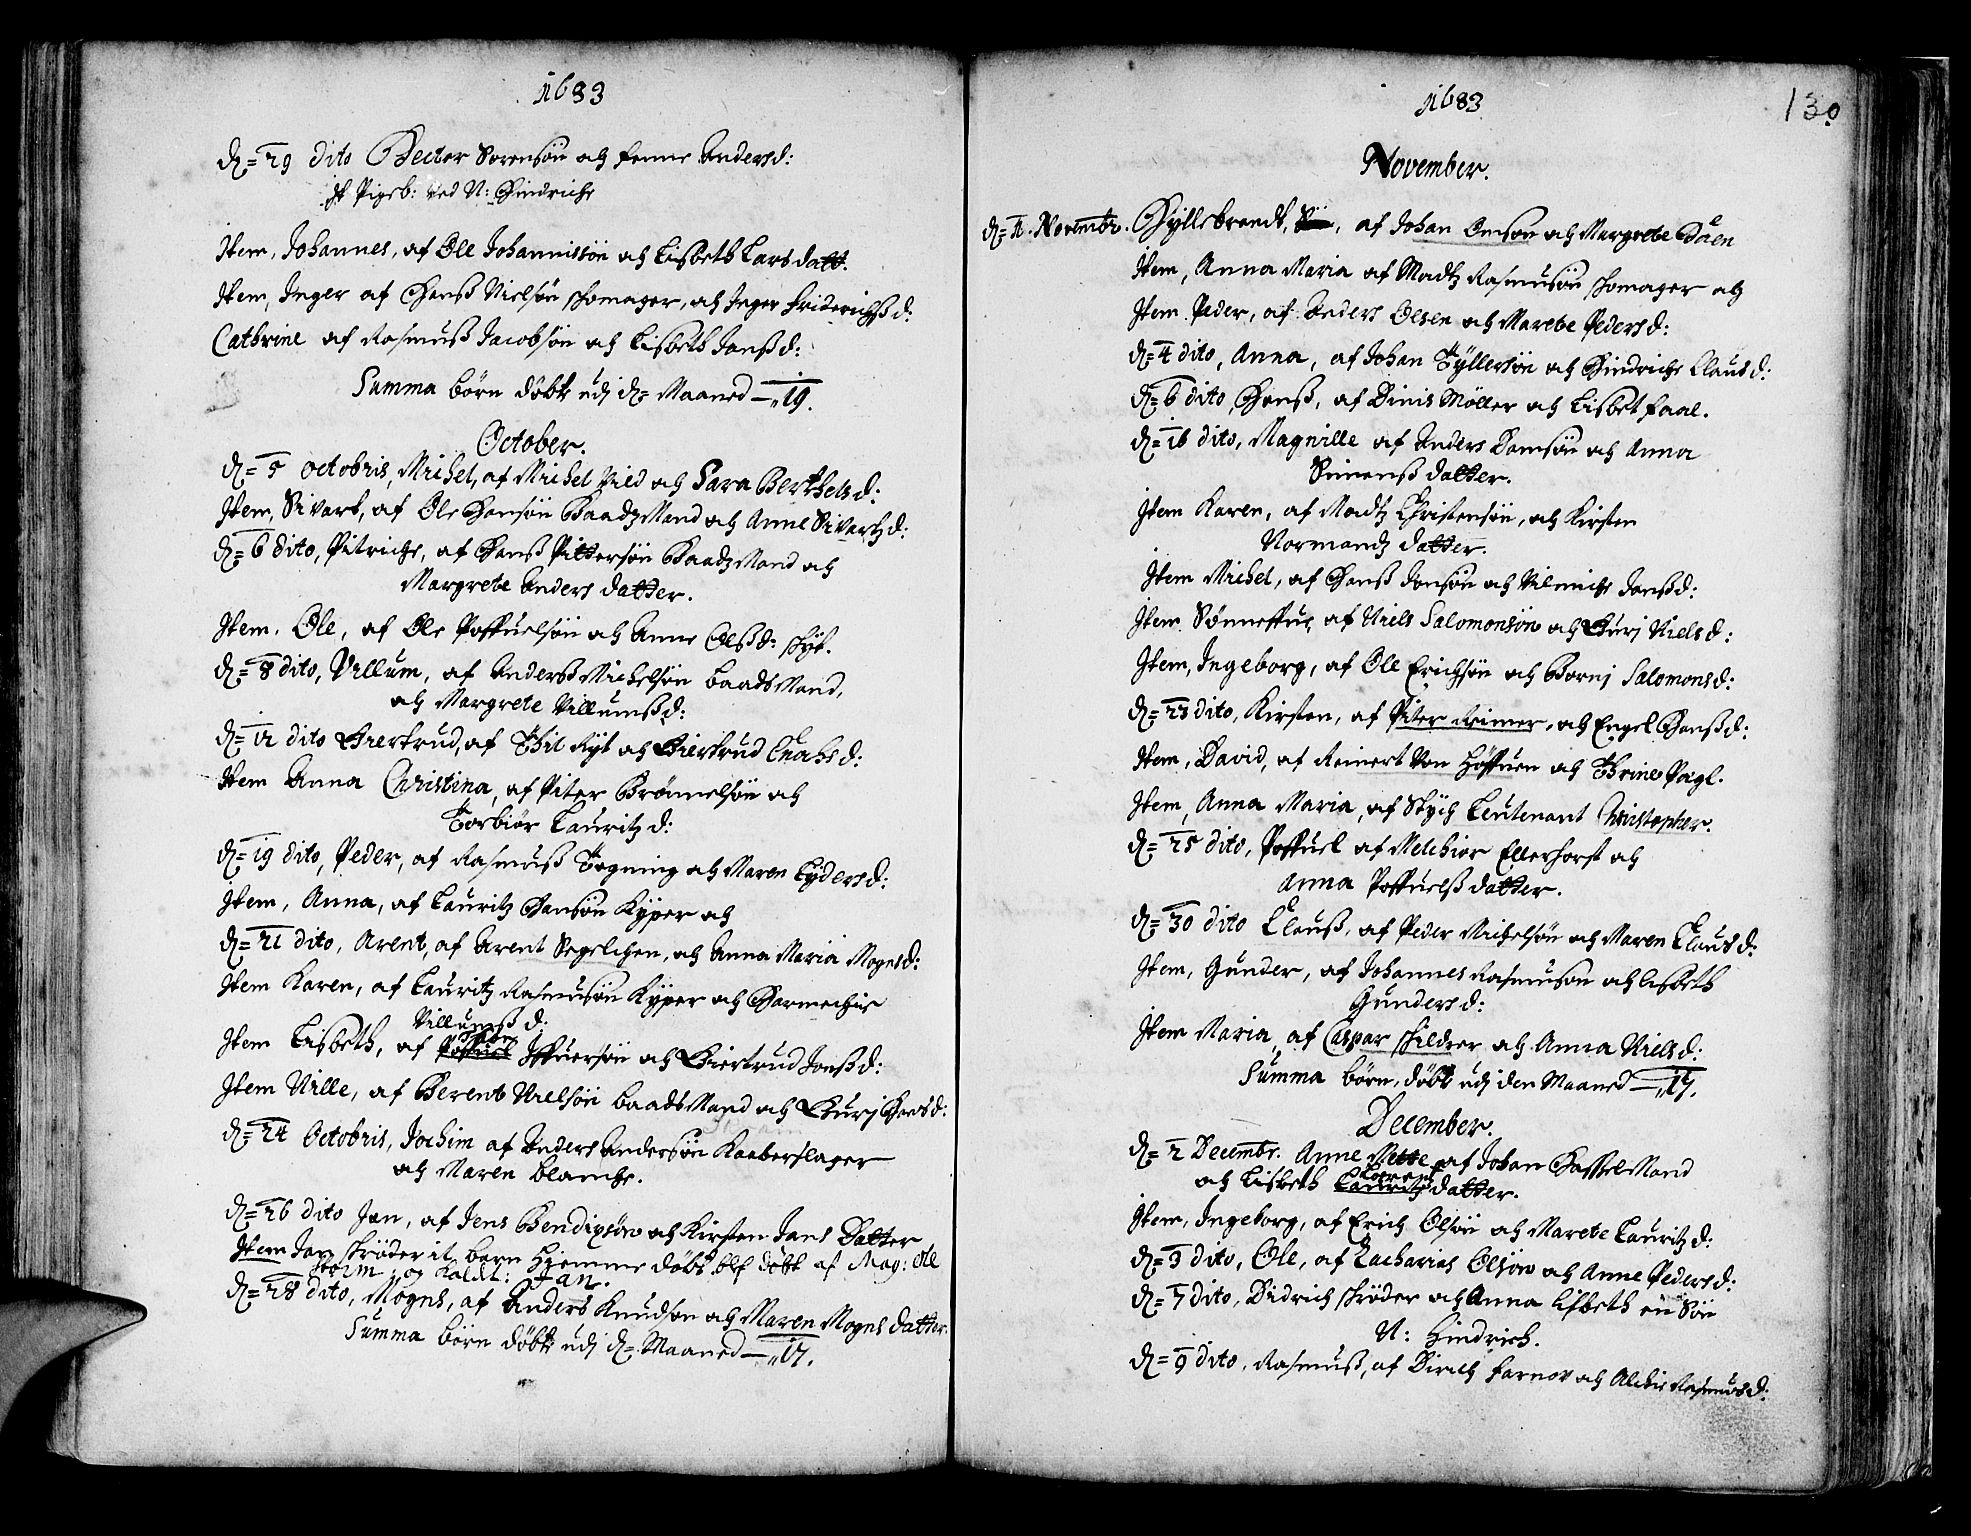 1683
d= 29 dito Becter Sorensøn och Fenne Andersd:
Pigeb: ved N: Hindriche
Item, Johannes, af Ole Johannissøn och Lisbeth Lars datt.
Item, Inger af Hanß Nielsøn skomager, och Inger Friderichßd:
Cathrine af Rasmuß Jacobsøn och Lisbeth Janßd:
Summa børn døbt udj d= Maaned — 19.
October.
d= 5 octobris, Michel, af Michel Pild och Sara Berthelsd:
Item, Sivart, af Ole Hansøn Baadzmand och Anne Sivartz d:
d= 6 dito, Pitriche, af Hanß Pittersøn Baadzmand och
Margrete Anders datter.
Item. Ole, af Ole Poffuelsøn och Anne Olßd: skÿt.
d= 8 dito, Villum, af Anders Michelsøn baadsmand,
och Margrete Villumßd:
d= 12 dito Giertrud, af Thil Rÿt och Giertrud Enahsd:
Item Anna Christina, af Piter Brønnelsøn och
Torbiør Lauritz d:
d= 19 dito, Peder, af Rasmuß Tegning och Maren Lÿdersd:
Item, Anna, af Lauritz Hansøn Kÿper och
d= 21 dito, Arent, af Arent Segelchen, och Anna Maria Mognsd:
Item Karen, af Lauritz Rasmusøn Kÿper och Harmechie
Villumß d:
Item Lisbeth, af Poffuel Iffuersøn och Giertrud Jonßd:
Item Nille, af Berent Nielsøn baadsmand och Gurj Hansd:
d= 24 Octobris, Jochim af Anders Andersøn Kaaberslager
och Maren Blanche.
d= 26 dito Jan, af Jens Bendixsøn och Kirsten Jans Datter
Item Jan skrøder it barn Hiemme døbt blf døbt af Mag: Ole
Storm og Kaldt: Jan.
d= 28 dito, Mogns, af Anders Knudsøn och Maren Mogns datter.
Summa børn døbt udj d= Maaned — 17.
1683
130
November.
d= 2. Novembr. Hÿllebrandt, af Johan Omsøn och Margrete Duen
Item, Anna Maria af Madtz Rasmusøn skomager och
Item Peder, af Anders Olsen och Marete Pedersd:
d= 4 dito, Anna, af Johan Tÿllersøn och Hindriche Clausd:
d= 6 dito, Hanß, af Dinis Møller och Lisbet Faal.
d= 16 dito, Magnille af Anders Damsøn och Anna
Simenß datter.
Item Karen, af Madtz Christensøn, och Kirsten
Normandz datter.
Item Michel, af Hanß Jansøn och Vilmiche Janßd:
Item Sønneffue af Niels Salomonsøn och Gurj Nielsd:
Item, Ingeborg, af Ole Erichsøn och Bornj Salomonsd:
d= 23 dito, Kirsten, af Piter Reimer, och Engel Hanßd:
Item, David, af Reinert Von Høffuen och Thrine Pagl.
Item, Anna Maria, af Stÿch Leutenant Christopher.
d= 25 dito, Poffuel af Melchior Ellerhorst och
Anna Poffuelß datter.
d= 30 dito Clauß, af Peder Michelsøn och Maren Clausd:
Item, Gunder, af Johannes Rasmuson och Lisbeth
Gundersd:
Item Maria, af Caspar skildrer och Anna Nielsd:
Summa børn, døbt udj den Maaned — 17.
December.
d= 2 Decembr. Anne Mette af Johan Hasselmand
och Lisbeth Lauritz datter.
Item, Ingeborg, af Erich Olsøn och Marete Lauritz d:
d= 3 dito, Ole, af Zacharias Olsøn och Anne Pedersd:
d= 7 dito, Didrich skrøder och Anna Lisbeth en Søn
N: Hindrich.
d= 9 dito, Rasmuß, af Dirich Farnov och Alchie Rasmusd: